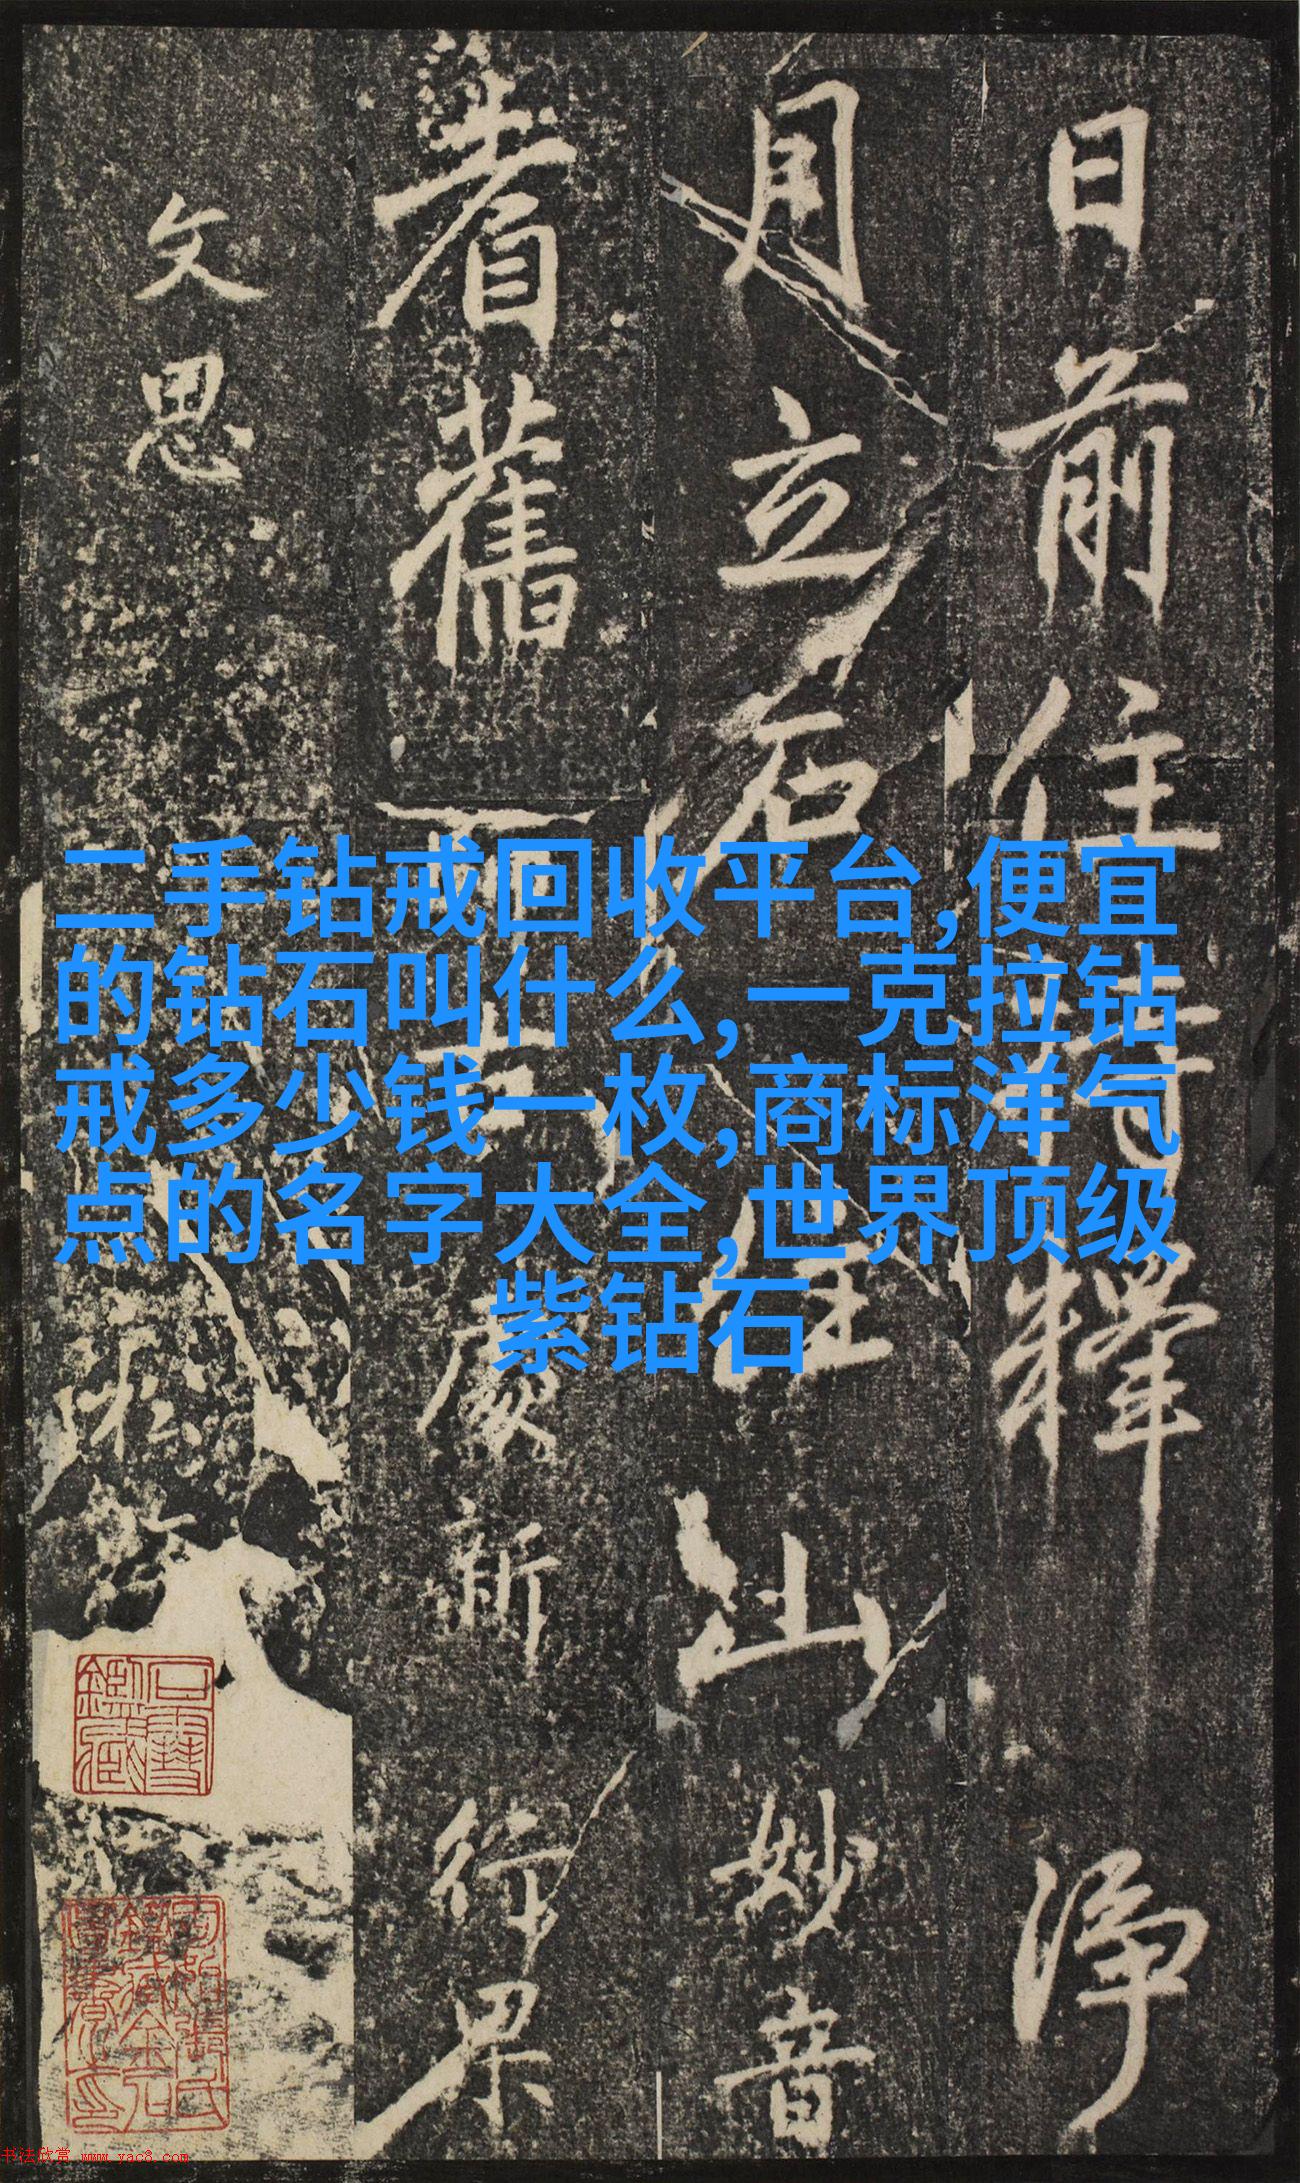 日前住持釋 淨
月立石 住山妙音
耆舊 慶新 行果
文思
二手钻戒回收平台,便宜
的钻石叫什么,一克拉钻
戒多少钱一枚,商标洋气
点的名字大全,世界顶级
紫钻石
书法欣赏 www.yac8.com